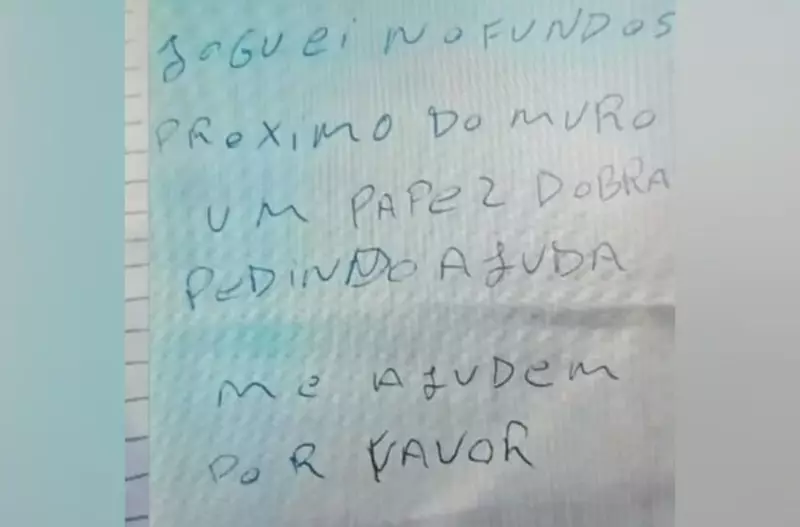 JOGUEI NO FUNDOS
PROXIMO DO MURO
UM PAPEL DOBRA
PEDINDO AJUDA
ME AJUDEM
POR FAVOR